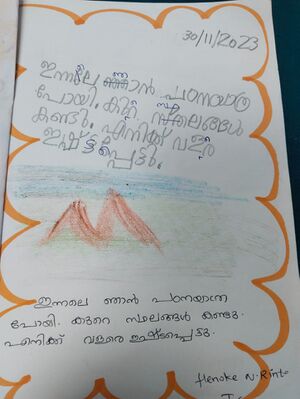 30/11/2023
ഇന്നലെ ഞാൻ പഠനയാത്ര
പോയി. കുറെ സ്ഥലങ്ങൾ
കണ്ടു. എനിക്ക് വളരെ
ഇഷ്ട്ടപ്പെട്ടു.
ഇന്നലെ ഞാൻ പഠനയാത്ര
പോയി. കുറെ സ്ഥലങ്ങൾ കണ്ടു.
എനിക്ക് വളരെ ഇഷ്ടപ്പെട്ടു.
Henoke N. Rinto